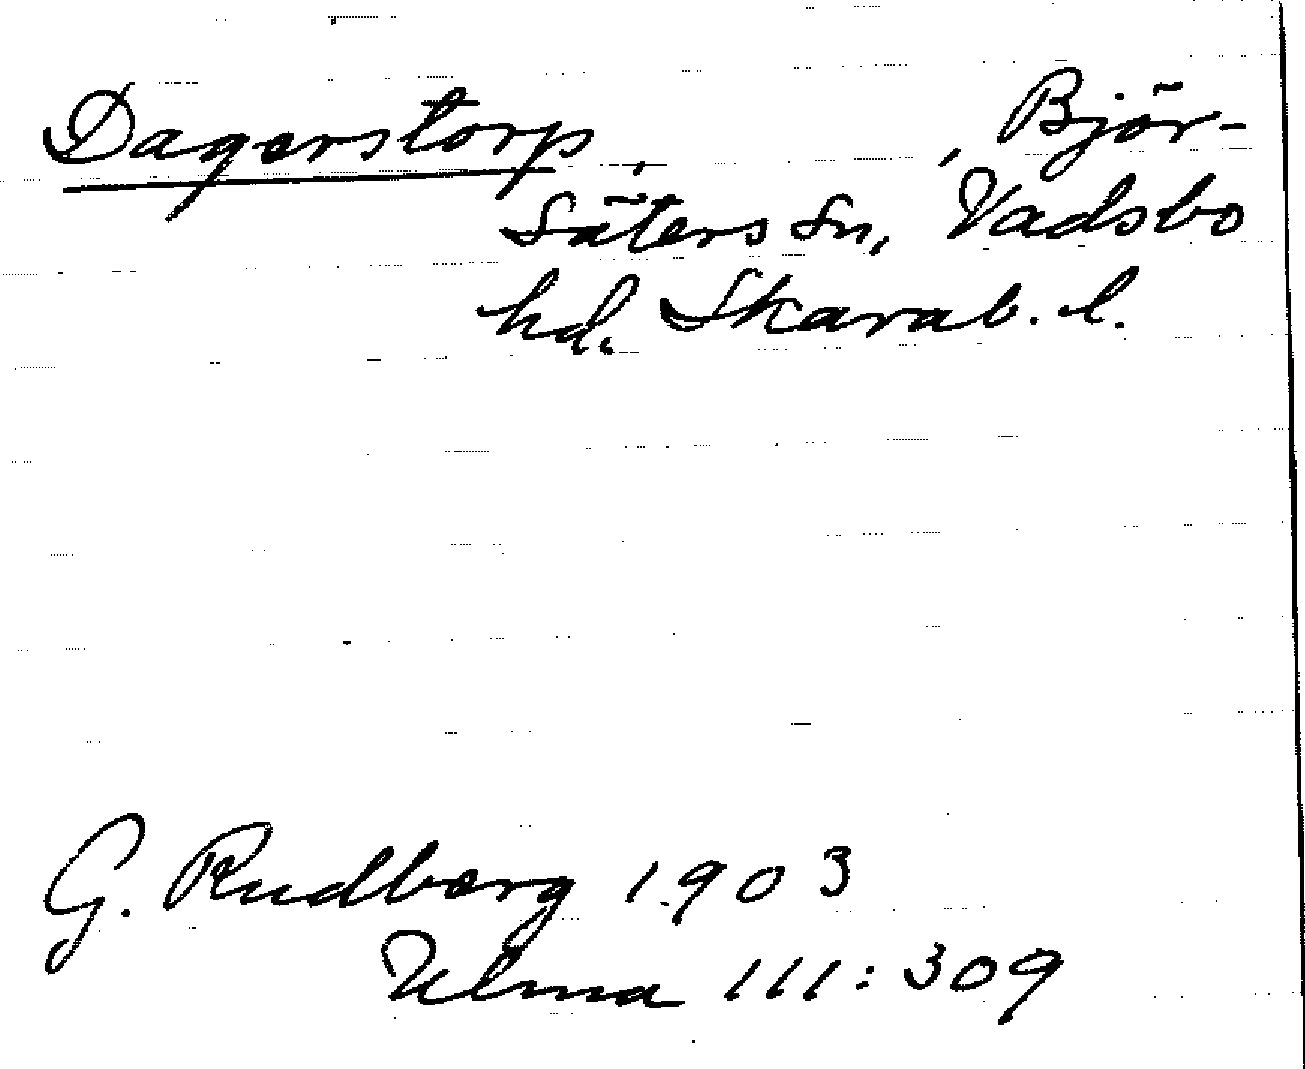 Dagerstorp, , Björ-
säters sn, Vadsbo
hd. Skarab. l.
G. Rudberg 1903
Ulma 111:309